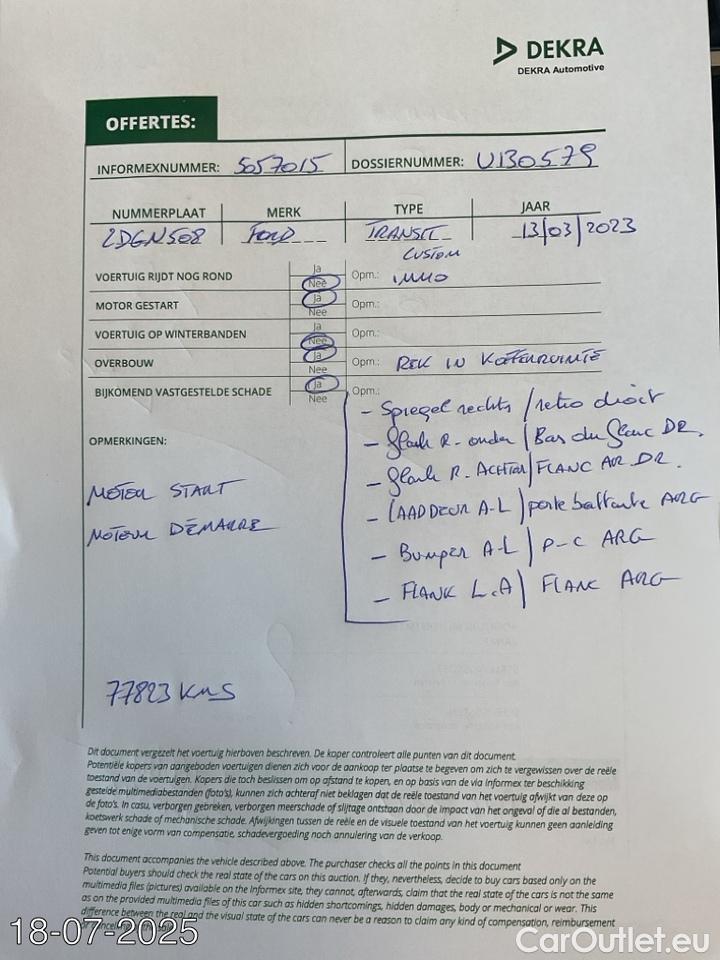 DEKRA
DEKRA Automotive
OFFERTES:
INFORMEXNUMMER: 5057015 DOSSIERNUMMER: U130579
NUMMERPLAAT MERK TYPE JAAR
2DGN508 FORD TRANSIT 13/03/2023
CUSTOM
VOERTUIG RIJDT NOG ROND Ja Nee Opm.: IMMO
MOTOR GESTART Ja Nee Opm.:
VOERTUIG OP WINTERBANDEN Ja Nee Opm.:
OVERBOUW Ja Nee Opm.: REK IN KOFFERRUIMTE
BIJKOMEND VASTGESTELDE SCHADE Ja Nee Opm.:
- Spiegel rechts / retro droit
OPMERKINGEN:
- flank R-onder / Bas du flanc DR.
- flank R. ACHTER / FLANC AR DR.
MOTEUR START
- LAADDEUR A-L / porte battante ARG
MOTEUR DÉMARRE
- Bumper A-L / P-C ARG
- FLANK L.A / FLANC ARG
77823 KMS
Dit document vergezelt het voertuig hierboven beschreven. De koper controleert alle punten van dit document.
Potentiële kopers van aangeboden voertuigen dienen zich voor de aankoop ter plaatse te begeven om zich te vergewissen over de reële
toestand van de voertuigen. Kopers die toch beslissen om op afstand te kopen, en op basis van de via Informex ter beschikking
gestelde multimediabestanden (foto's), kunnen zich achteraf niet beklagen dat de reële toestand van het voertuig afwijkt van deze op
de foto's. In casu, verborgen gebreken, verborgen meerschade of slijtage ontstaan door de impact van het ongeval of die al bestanden,
koetswerk schade of mechanische schade. Afwijkingen tussen de reële en de visuele toestand van het voertuig kunnen geen aanleiding
geven tot enige vorm van compensatie, schadevergoeding noch annulering van de verkoop.
This document accompanies the vehicle described above. The purchaser checks all the points in this document
Potential buyers should check the real state of the cars on this auction. If they, nevertheless, decide to buy cars based only on the
multimedia files (pictures) available on the Informex site, they cannot, afterwards, claim that the real state of the cars is not the same
as on the provided multimedia files of this car such as hidden shortcomings, hidden damages, body or mechanical or wear. This
difference between the real and the visual state of the cars can never be a reason to claim any kind of compensation, reimbursement
18-07-2025
CarOutlet.eu